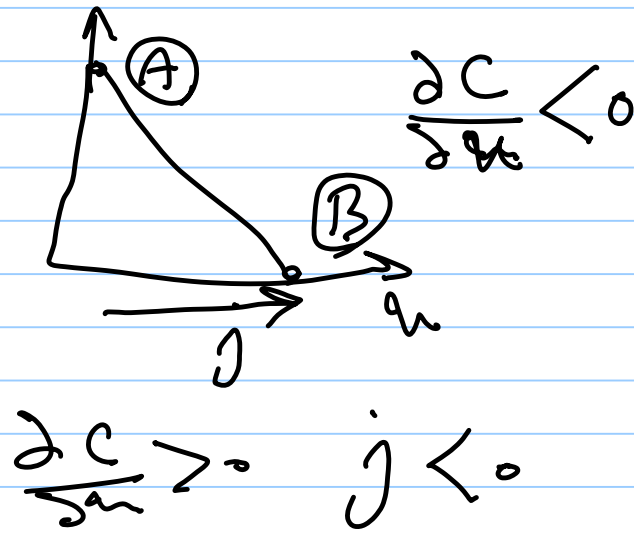 A
∂C/∂x < 0
B
x
J
∂C/∂x > 0 j < 0